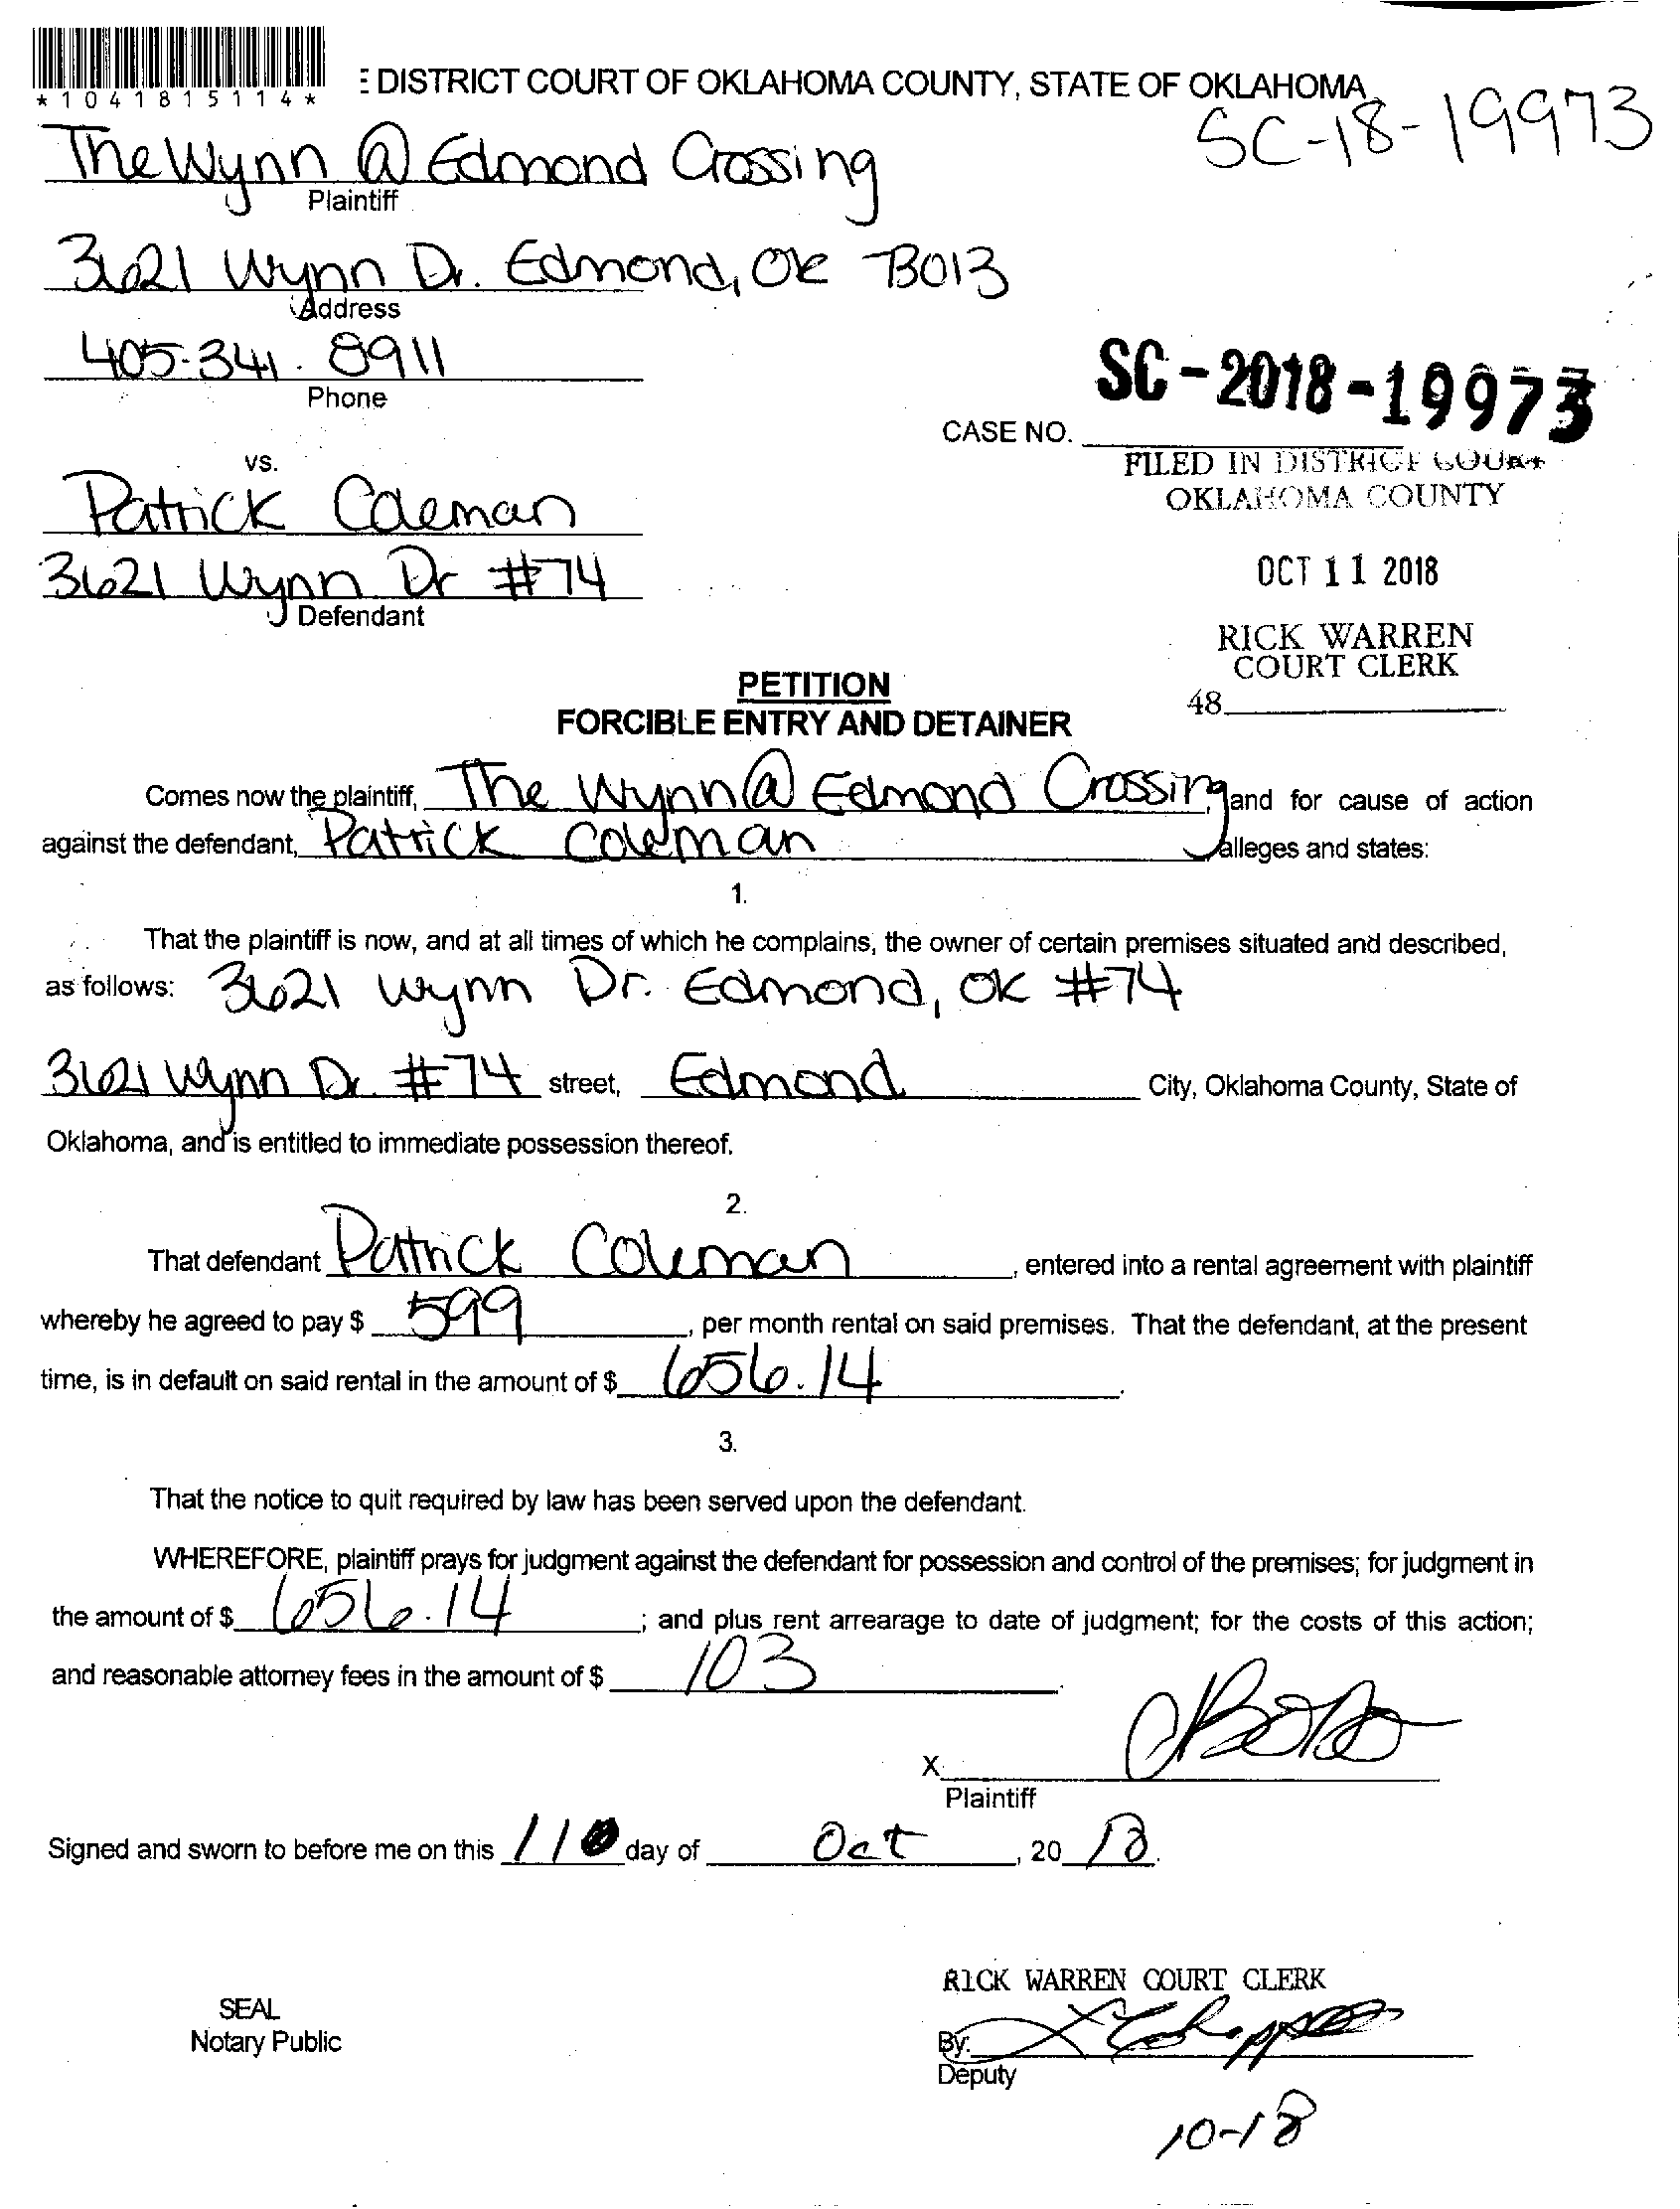 *1041815114*
E DISTRICT COURT OF OKLAHOMA COUNTY, STATE OF OKLAHOMA
SC-18-19973
The Wynn @ Edmond Crossing
Plaintiff
3621 Wynn Dr. Edmond, OK 73013
Address
405-341.8911
Phone
SC-2018-19973
CASE NO.
FILED IN DISTRICT COURT
OKLAHOMA COUNTY
vs.
Patrick Coleman
3621 Wynn Dr #74
Defendant
OCT 11 2018
RICK WARREN
COURT CLERK
48
PETITION
FORCIBLE ENTRY AND DETAINER
Comes now the plaintiff, The Wynn @ Edmond Crossing, and for cause of action
against the defendant, Patrick Coleman alleges and states:
1.
That the plaintiff is now, and at all times of which he complains, the owner of certain premises situated and described,
as follows: 3621 Wynn Dr. Edmond, OK #74
3621 Wynn Dr. #74 street, Edmond City, Oklahoma County, State of
Oklahoma, and is entitled to immediate possession thereof.
2.
That defendant Patrick Coleman, entered into a rental agreement with plaintiff
whereby he agreed to pay $ 599, per month rental on said premises. That the defendant, at the present
time, is in default on said rental in the amount of $ 656.14.
3.
That the notice to quit required by law has been served upon the defendant.
WHEREFORE, plaintiff prays for judgment against the defendant for possession and control of the premises; for judgment in
the amount of $ 656.14; and plus rent arrearage to date of judgment; for the costs of this action;
and reasonable attorney fees in the amount of $ 103.
X
Plaintiff
Signed and sworn to before me on this 11 day of Oct, 20 18.
RICK WARREN COURT CLERK
SEAL
Notary Public
By:
Deputy
10-18